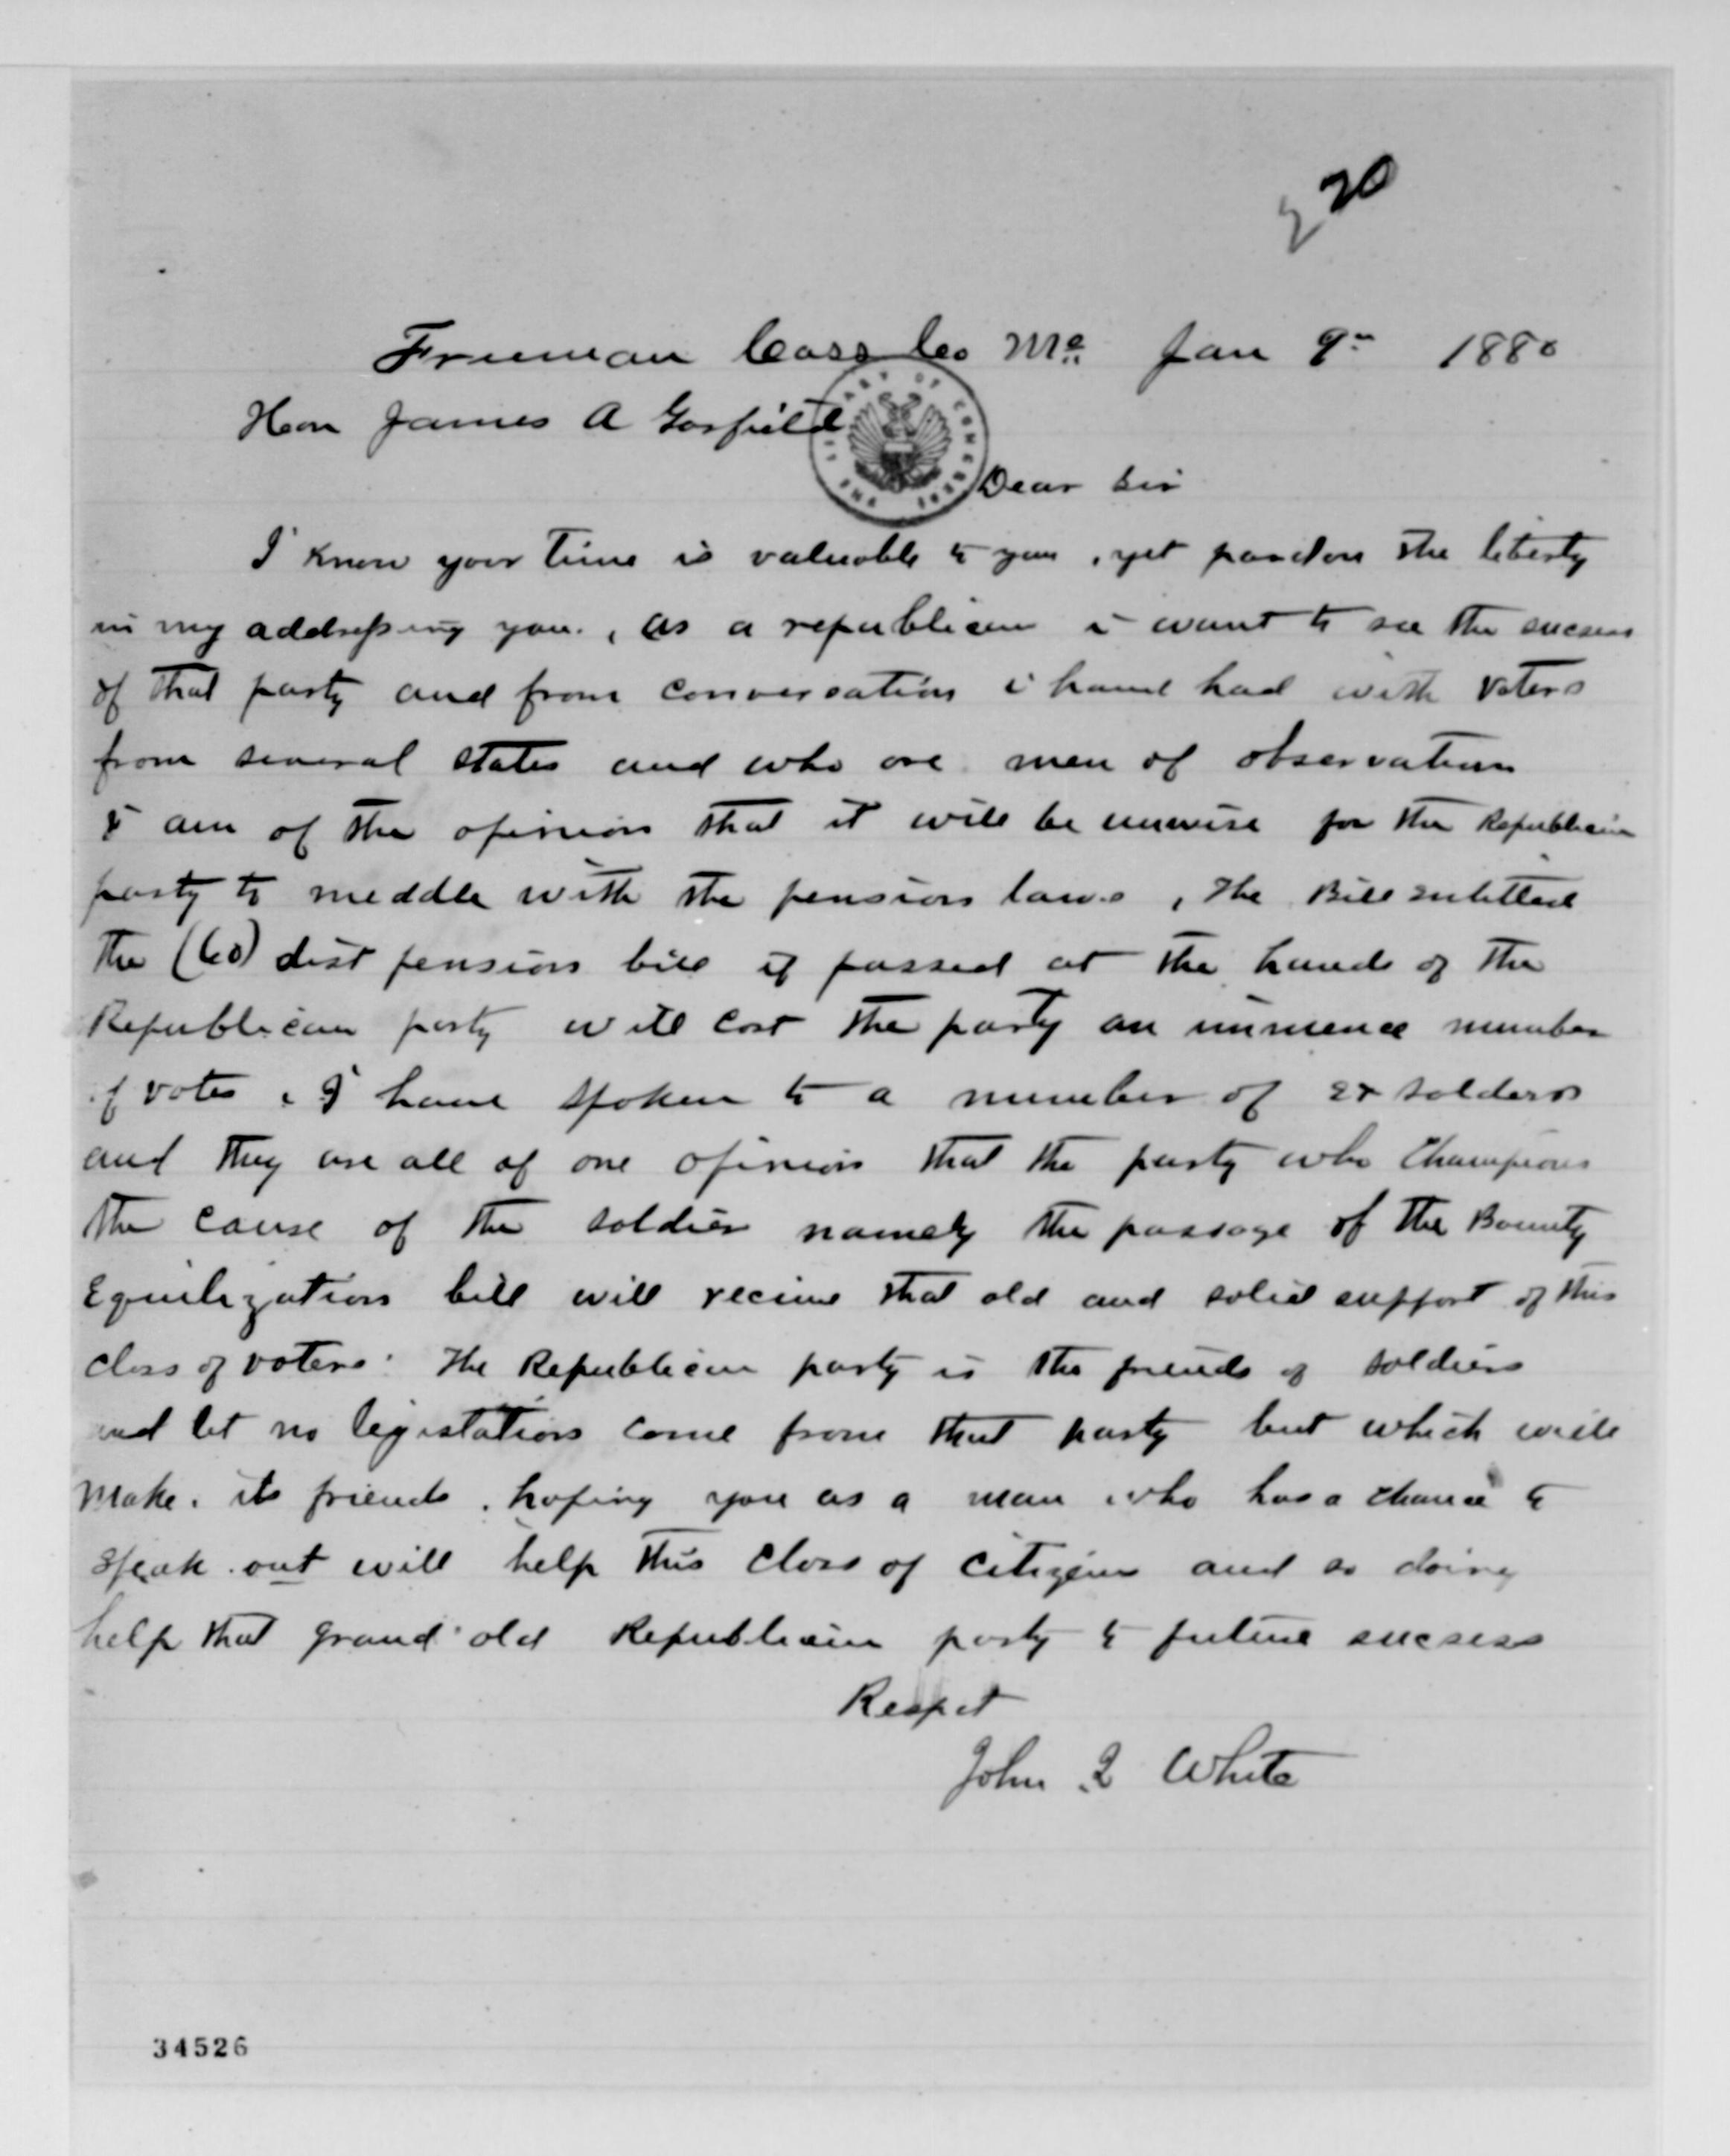 20
Freeman Cass Co Mo Jan 9" 1880
Hon James A Garfield
THE LIBRARY OF CONGRESS
Dear Sir
I know your time is valuable to you, yet pardon the liberty
in my addressing you., as a republican i want to see the success
of that party and from conversation i have had with voters
from several states and who are men of observation
I am of the opinion that it will be unwise for the Republican
party to meddle with the pension laws, The Bill entitled
the (60) dist pension bill if passed at the hands of the
Republican party will cost the party an immence number
of votes. I have spoken to a number of ex solders
and they are all of one opinion that the party who champions
the cause of the soldier namely the passage of the Bounty
Equilization bill will recieve that old and solid support of this
class of voters. The Republican party is the friends of soldiers
and let no legislation come from that party but which will
make its friends. hoping you as a man who has a chance to
speak out will help this class of citizens and so doing
help that grand old Republican party to future success
Respct
John Q White
34526